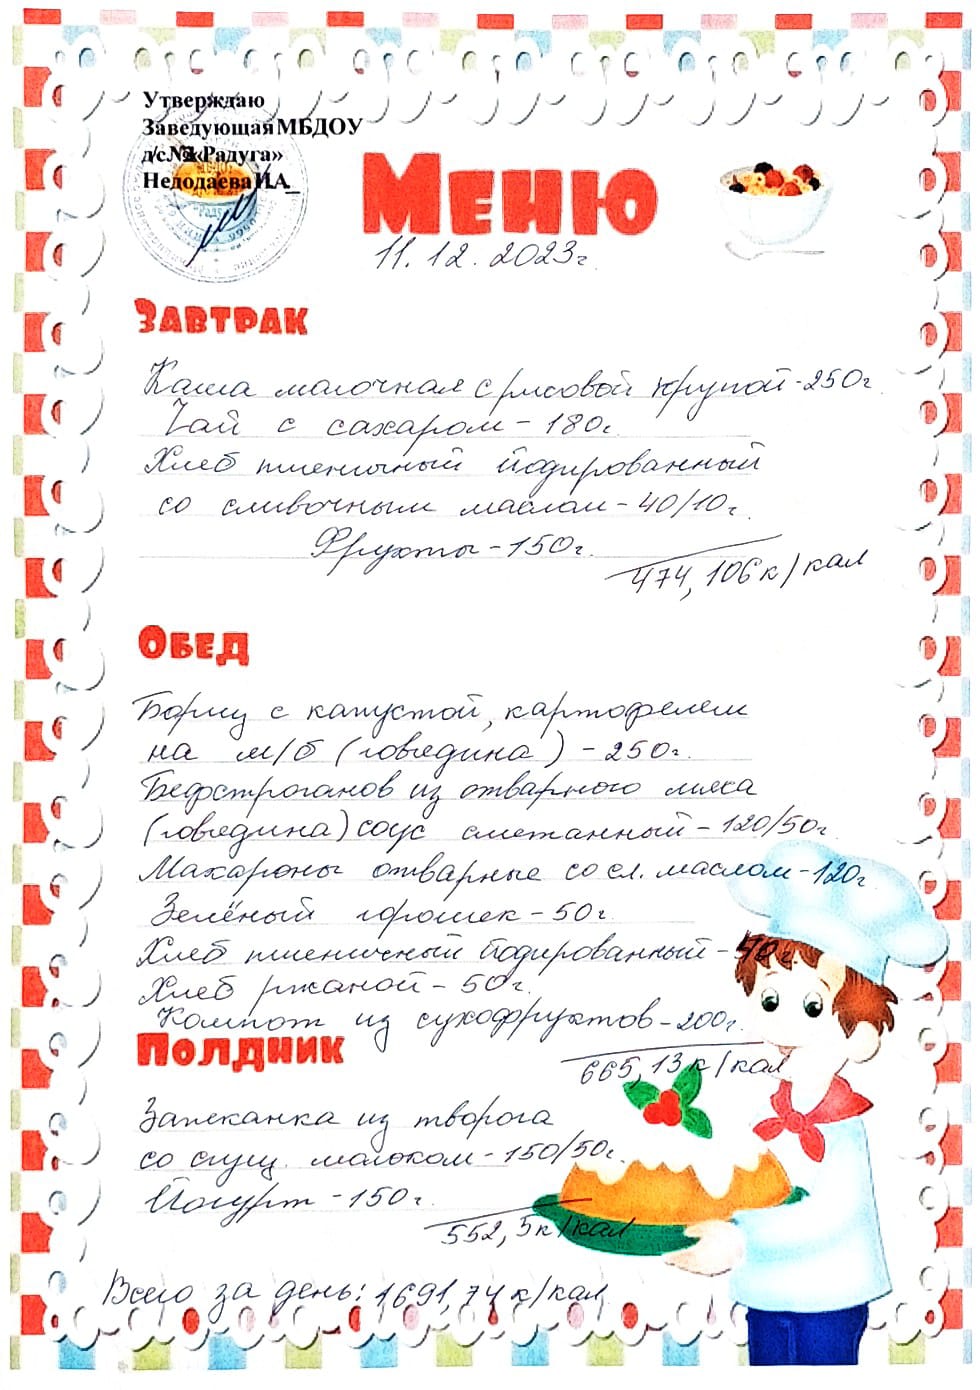 Утверждаю
Заведующая МБДОУ
д/с № «Радуга»
Недодаева И.А_
Меню
11.12.2023г.
Завтрак
Каша молочная с рисовой крупой - 250г
Чай с сахаром - 180г.
Хлеб пшеничный йодированный
со сливочным маслом - 40/10г.
Фрукты - 150г.
474,106 к/кал
Обед
Борщ с капустой, картофелем
на м/б (говядина) - 250г.
Бефстроганов из отварного мяса
(говядина) соус сметанный - 120/50г.
Макароны отварные со сл. маслом - 120г
Зелёный горошек - 50г.
Хлеб пшеничный йодированный - 40г.
Хлеб ржаной - 50г.
Компот из сухофруктов - 200г.
665,13 к/кал
Полдник
Запеканка из творога
со сгущ. молоком - 150/50г.
Йогурт - 150г.
552,5 к/кал
Всего за день: 1691,74 к/кал